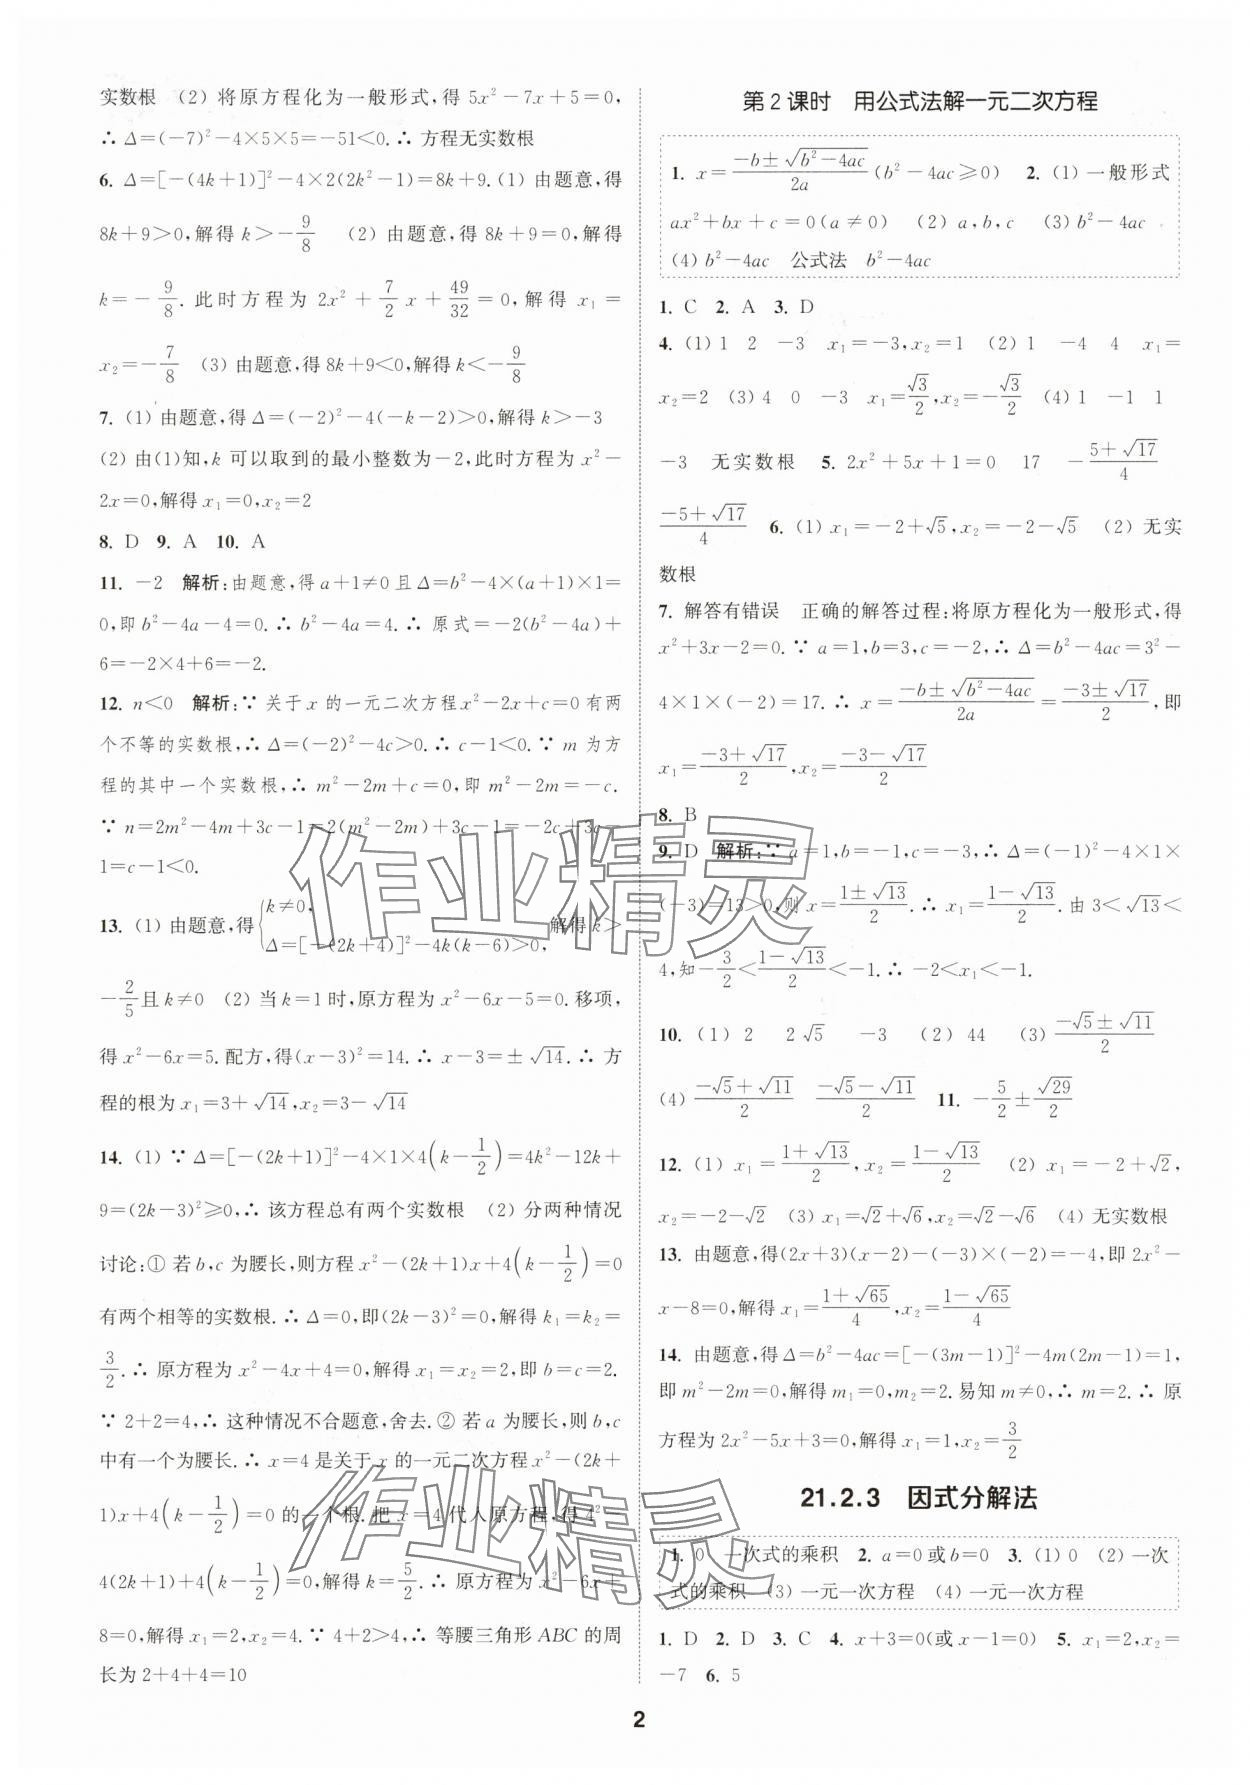 实数根 (2) 将原方程化为一般形式,得 5x²-7x+5=0,
∴ Δ=(-7)²-4×5×5=-51<0.∴ 方程无实数根
6. Δ=[-(4k+1)]²-4×2(2k²-1)=8k+9.(1) 由题意,得
8k+9>0,解得 k>-9/8 (2) 由题意,得 8k+9=0,解得
k=-9/8. 此时方程为 2x²+7/2 x+49/32=0,解得 x₁=
x₂=-7/8 (3) 由题意,得 8k+9<0,解得 k<-9/8
7. (1) 由题意,得 Δ=(-2)²-4(-k-2)>0,解得 k>-3
(2) 由(1)知,k 可以取到的最小整数为-2,此时方程为 x²-
2x=0,解得 x₁=0,x₂=2
8. D 9. A 10. A
11. -2 解析:由题意,得 a+1≠0 且 Δ=b²-4×(a+1)×1=
0,即 b²-4a-4=0.∴ b²-4a=4.∴ 原式=-2(b²-4a)+
6=-2×4+6=-2.
12. n<0 解析:∵ 关于 x 的一元二次方程 x²-2x+c=0 有两
个不等的实数根,∴ Δ=(-2)²-4c>0.∴ c-1<0.∵ m 为方
程的其中一个实数根,∴ m²-2m+c=0,即 m²-2m=-c.
∵ n=2m²-4m+3c-1=2(m²-2m)+3c-1=-2c+3c-
1=c-1<0.
13. (1) 由题意,得{k≠0, Δ=[-(2k+4)]²-4k(k-6)>0, 解得 k>
-2/5且 k≠0 (2) 当 k=1 时,原方程为 x²-6x-5=0.移项,
得 x²-6x=5.配方,得(x-3)²=14.∴ x-3=±√14.∴ 方
程的根为 x₁=3+√14,x₂=3-√14
14. (1) ∵ Δ=[-(2k+1)]²-4×1×4(k-1/2)=4k²-12k+
9=(2k-3)²≥0,∴ 该方程总有两个实数根 (2) 分两种情况
讨论:① 若 b,c 为腰长,则方程 x²-(2k+1)x+4(k-1/2)=0
有两个相等的实数根.∴ Δ=0,即(2k-3)²=0,解得 k₁=k₂=
3/2.∴ 原方程为 x²-4x+4=0,解得 x₁=x₂=2,即 b=c=2.
∵ 2+2=4,∴ 这种情况不合题意,舍去.② 若 a 为腰长,则 b,c
中有一个为腰长.∴ x=4 是关于 x 的一元二次方程 x²-(2k+
1)x+4(k-1/2)=0 的一个根.把 x=4 代入原方程,得 4²-
4(2k+1)+4(k-1/2)=0,解得 k=5/2.∴ 原方程为 x²-6x+
8=0,解得 x₁=2,x₂=4.∵ 4+2>4,∴ 等腰三角形 ABC 的周
长为 2+4+4=10
第2课时 用公式法解一元二次方程
1. x=(-b±√(b²-4ac))/2a (b²-4ac≥0) 2. (1) 一般形式
ax²+bx+c=0(a≠0) (2) a,b,c (3) b²-4ac
(4) b²-4ac 公式法 b²-4ac
1. C 2. A 3. D
4. (1) 1 2 -3 x₁=-3,x₂=1 (2) 1 -4 4 x₁=
x₂=2 (3) 4 0 -3 x₁=√3/2,x₂=-√3/2 (4) 1 -1 1
-3 无实数根 5. 2x²+5x+1=0 17 -(5+√17)/4
(-5+√17)/4 6. (1) x₁=-2+√5,x₂=-2-√5 (2) 无实
数根
7. 解答有错误 正确的解答过程:将原方程化为一般形式,得
x²+3x-2=0.∵ a=1,b=3,c=-2,∴ Δ=b²-4ac=3²-
4×1×(-2)=17.∴ x=(-b±√(b²-4ac))/2a=(-3±√17)/2,即
x₁=(-3+√17)/2,x₂=(-3-√17)/2
8. B
9. D 解析:∵ a=1,b=-1,c=-3,∴ Δ=(-1)²-4×1×
(-3)=13>0,则 x=(1±√13)/2.∴ x₁=(1-√13)/2.由 3<√13<
4,知-3/2<(1-√13)/2<-1.∴ -2<x₁<-1.
10. (1) 2 2√5 -3 (2) 44 (3) (-√5±√11)/2
(4) (-√5+√11)/2 (-√5-√11)/2 11. -5/2±√29/2
12. (1) x₁=(1+√13)/2,x₂=(1-√13)/2 (2) x₁=-2+√2,
x₂=-2-√2 (3) x₁=√2+√6,x₂=√2-√6 (4) 无实数根
13. 由题意,得(2x+3)(x-2)-(-3)×(-2)=-4,即 2x²-
x-8=0,解得 x₁=(1+√65)/4,x₂=(1-√65)/4
14. 由题意,得 Δ=b²-4ac=[-(3m-1)]²-4m(2m-1)=1,
即 m²-2m=0,解得 m₁=0,m₂=2.易知 m≠0,∴ m=2.∴ 原
方程为 2x²-5x+3=0,解得 x₁=1,x₂=3/2
21.2.3 因式分解法
1. 0 一次式的乘积 2. a=0 或 b=0 3. (1) 0 (2) 一次
式的乘积 (3) 一元一次方程 (4) 一元一次方程
1. D 2. D 3. C 4. x+3=0(或 x-1=0) 5. x₁=2,x₂=
-7 6. 5
2
作业精灵
作业精灵